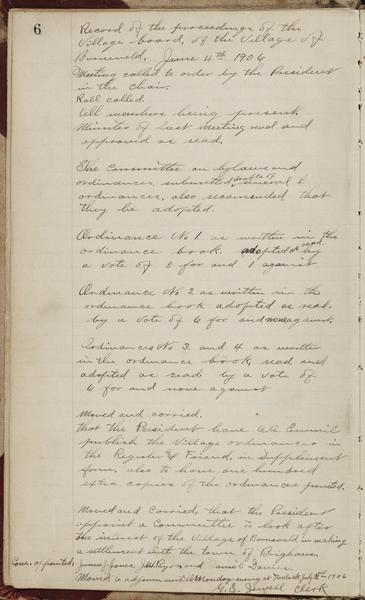 6
Record of the proceedings of the
Village board, of the Village of
June 4th 1906
Meeting called to order by the President
in the Chair.
Roll called.
All members being present.
Minutes of Last Meeting read and
approved as read.
The Committee on bylaws and
ordinances, submitted drafts of several
ordinances, also recomended that
they be adopted.
Ordinance No 1 as written in the
ordinance book. adopted as read by
a vote of 5 for and 1 against
Ordinance No 2 as written in the
ordinance book adopted as read.
by a vote of 6 for and none against.
Ordinances No. 3. and 4 as written
in the ordinance book, read and
adopted as read by a vote of
6 for and none against
Moved and carried.
that the President have
publish the Village ordinances in
the Register & Friend, in Supplement
form, also to have one hundred
extra copies of the ordinances printed.
Moved and Carried, that the President
appoint a Committee to look after
the interest of the Village of in making
a settlement with the town of
Com. appointed. Jones, and
Moved to adjourn until Monday evening at 7 oclock July 2nd 1906
G. E. Jewell Clerk